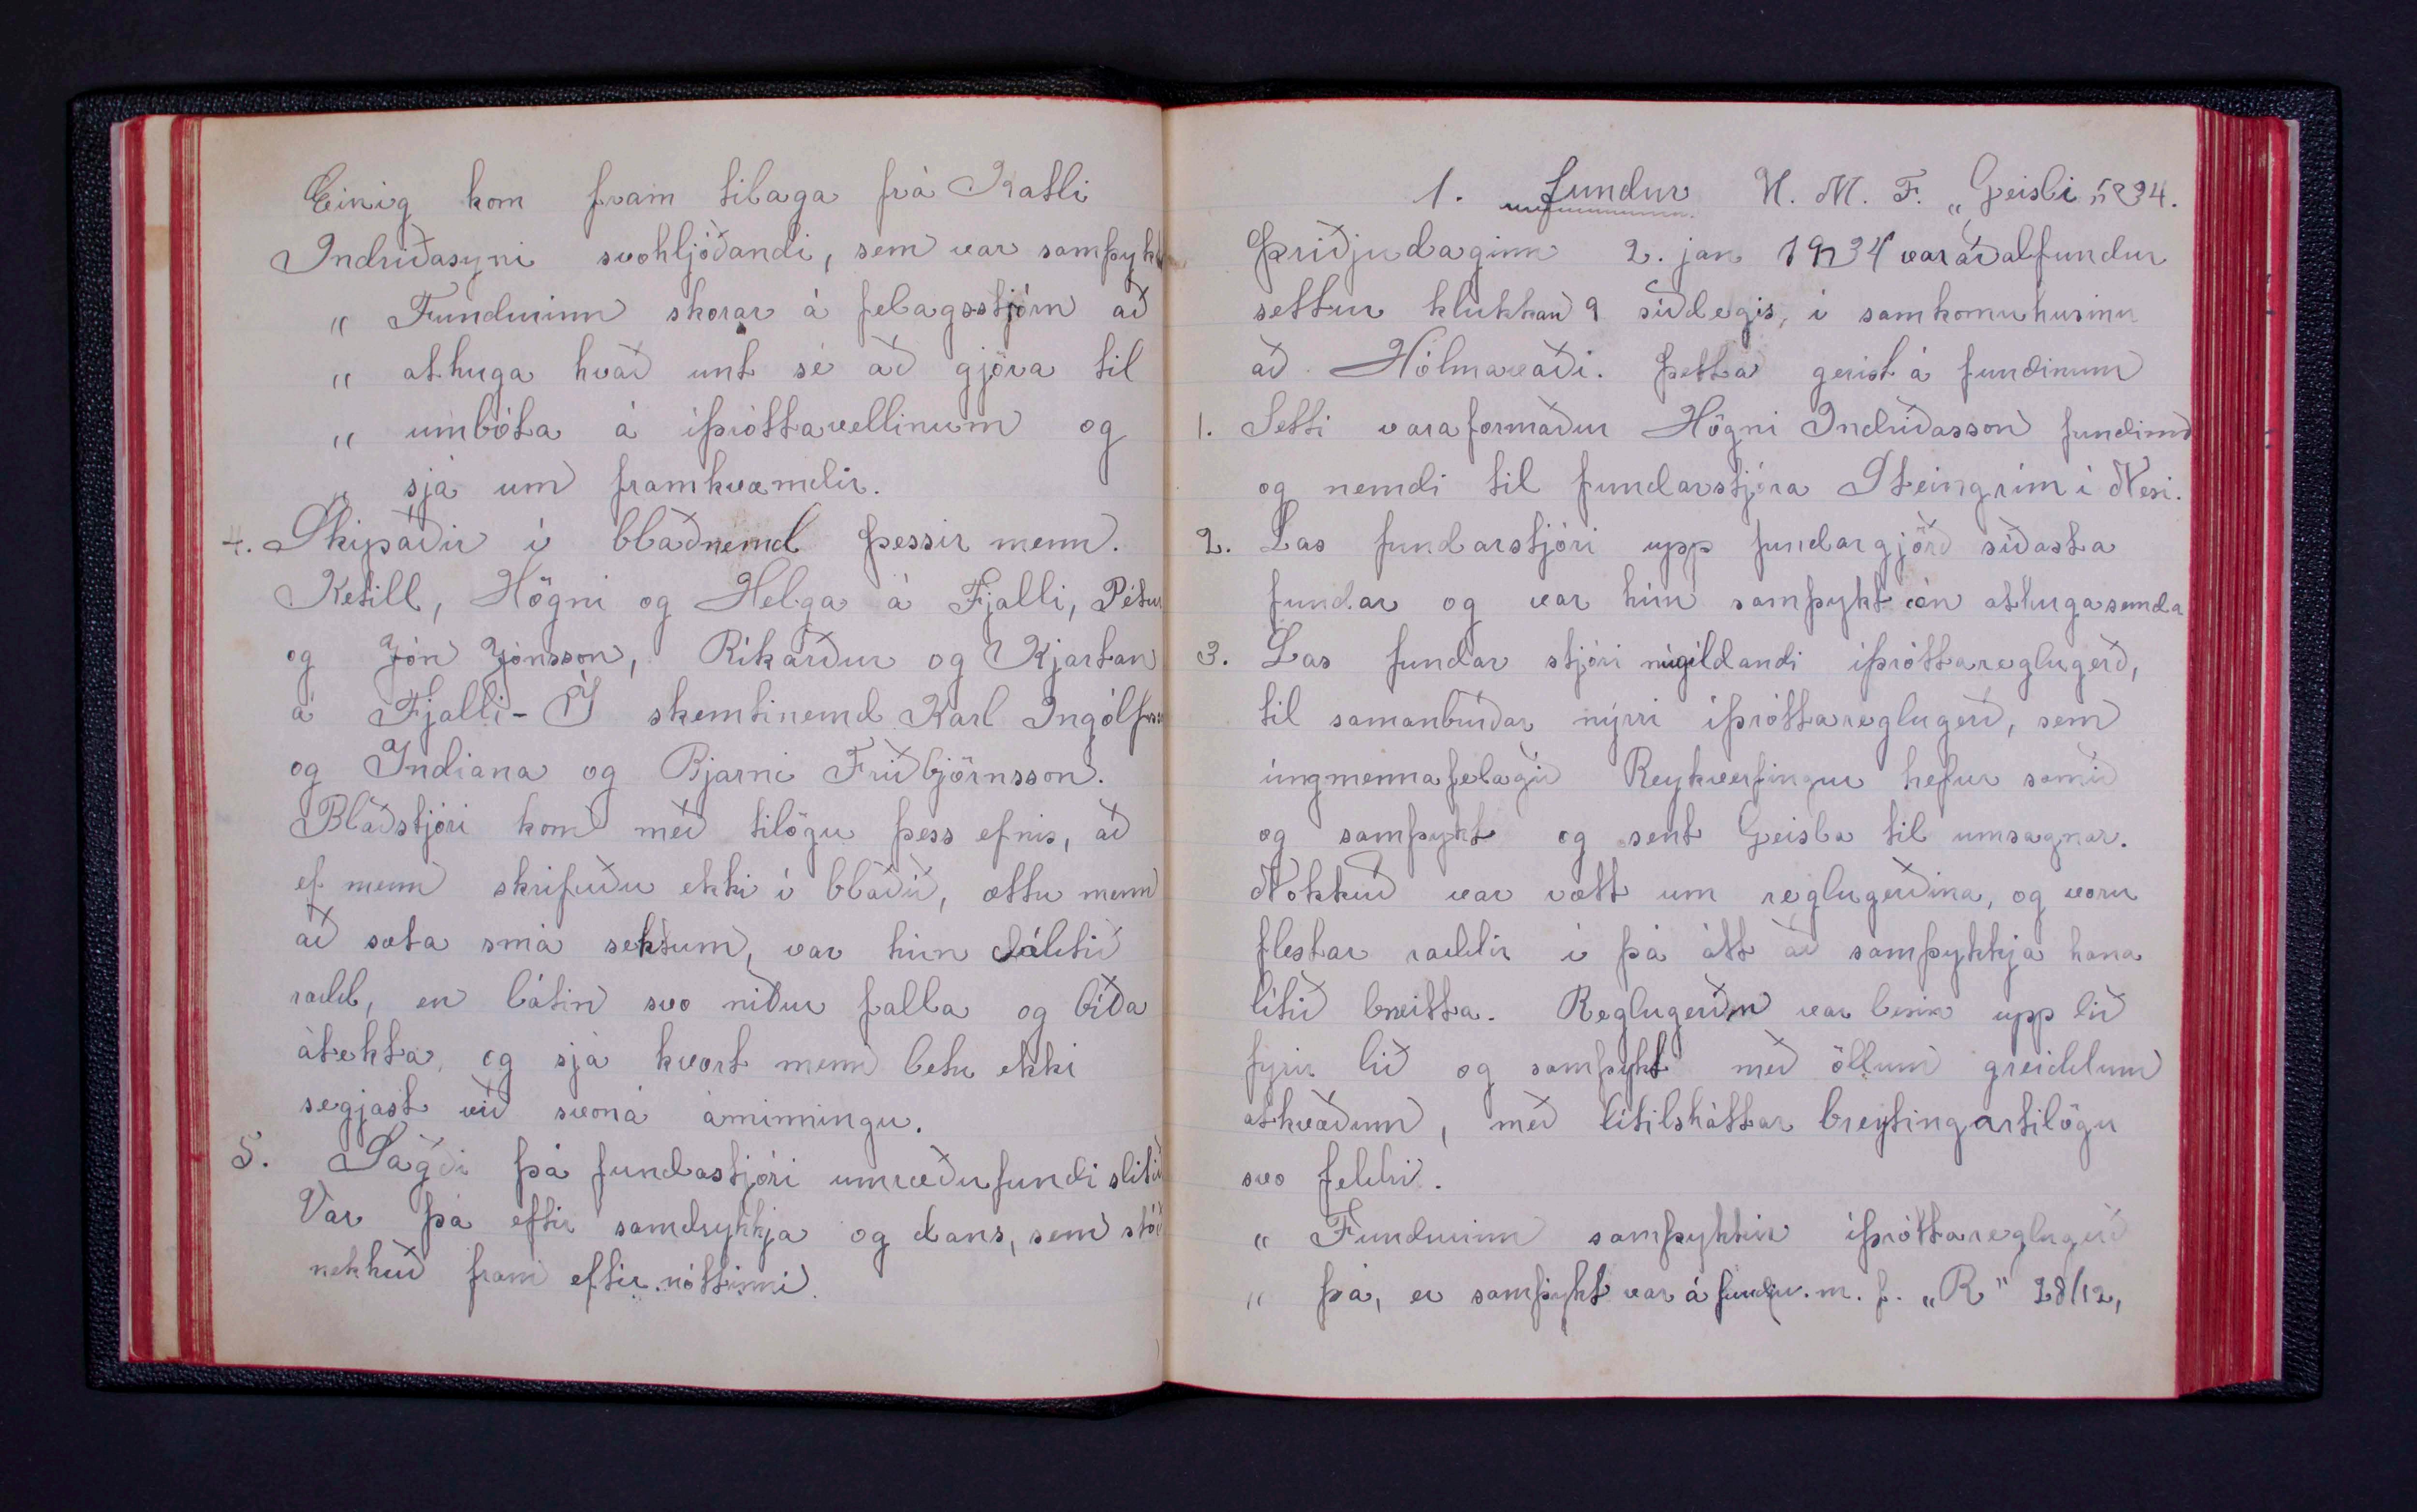 Einig kom fram tilaga frá Katli
Indriðasyni svohljóðandi, sem var samþykt
„ Fundurinn skorar á felagsstjórn að
„ athuga hvað unt sé að gjöra til
„ umbóta á íþróttavellinum og
„ sjá um framkvæmdir.
4. Skipaðir í blaðnemd þessir menn.
Ketill, Högni og Helga á Fjalli, Pétur
og Jón Jónsson, Ríkarður og Kjartan
á Fjalli - Í skemtinemd Karl Ingólfur
og Indiana og Bjarni Friðbjörnsson.
Blaðstjóri kom með tilögu þess efnis, að
ef menn skrifuðu ekki í blaðið, ættu menn
að sæta smá sektum, var hún dálitið
rædd, en látin svo niður falla og bíða
átekta, og sjá hvort menn letu ekki
segjast við svona áminningu.
5. Sagði þá fundastjóri umræðufundi slitið
Var þá eftir samdrykkja og dans, sem stóð
nokkuð fram eftir nóttinni.
1. fundur U. M. F. „Geisli" 34.
Þriðjudaginn 2. jan 1934 var aðalfundur
settur klukkan 9 síðdegis, í samkomuhusinu
að Hólmavaði. Þetta gerist á fundinum
1. Setti varaformaður Högni Indriðasson fundinn
og nemdi til fundarstjóra Steingrím í Nesi.
2. Las fundarstjóri upp fundargjörð síðasta
fundar og var hún samþykt án athugasemda
3. Las fundar stjóri núgildandi íþróttareglugerð,
til samanburðar nýrri íþróttareglugerð, sem
ungmennafelagið Reykverfingur hefur samið
og samþykt og sent Geisla til umsagnar.
Nokkuð var rætt um reglugerðina, og voru
flestar raddir í þá átt að samþykkja hana
lítið breitta. Reglugerðin var lesin upp lið
fyrir lið og samþykt með öllum greiddum
atkvæðum, með lítilsháttar breytingartilögu
svo feldri.
„ Fundurinn samþykkir íþróttareglugerð
„ þá, er samþykt var á fundi u. m. f. „R" 28/12,